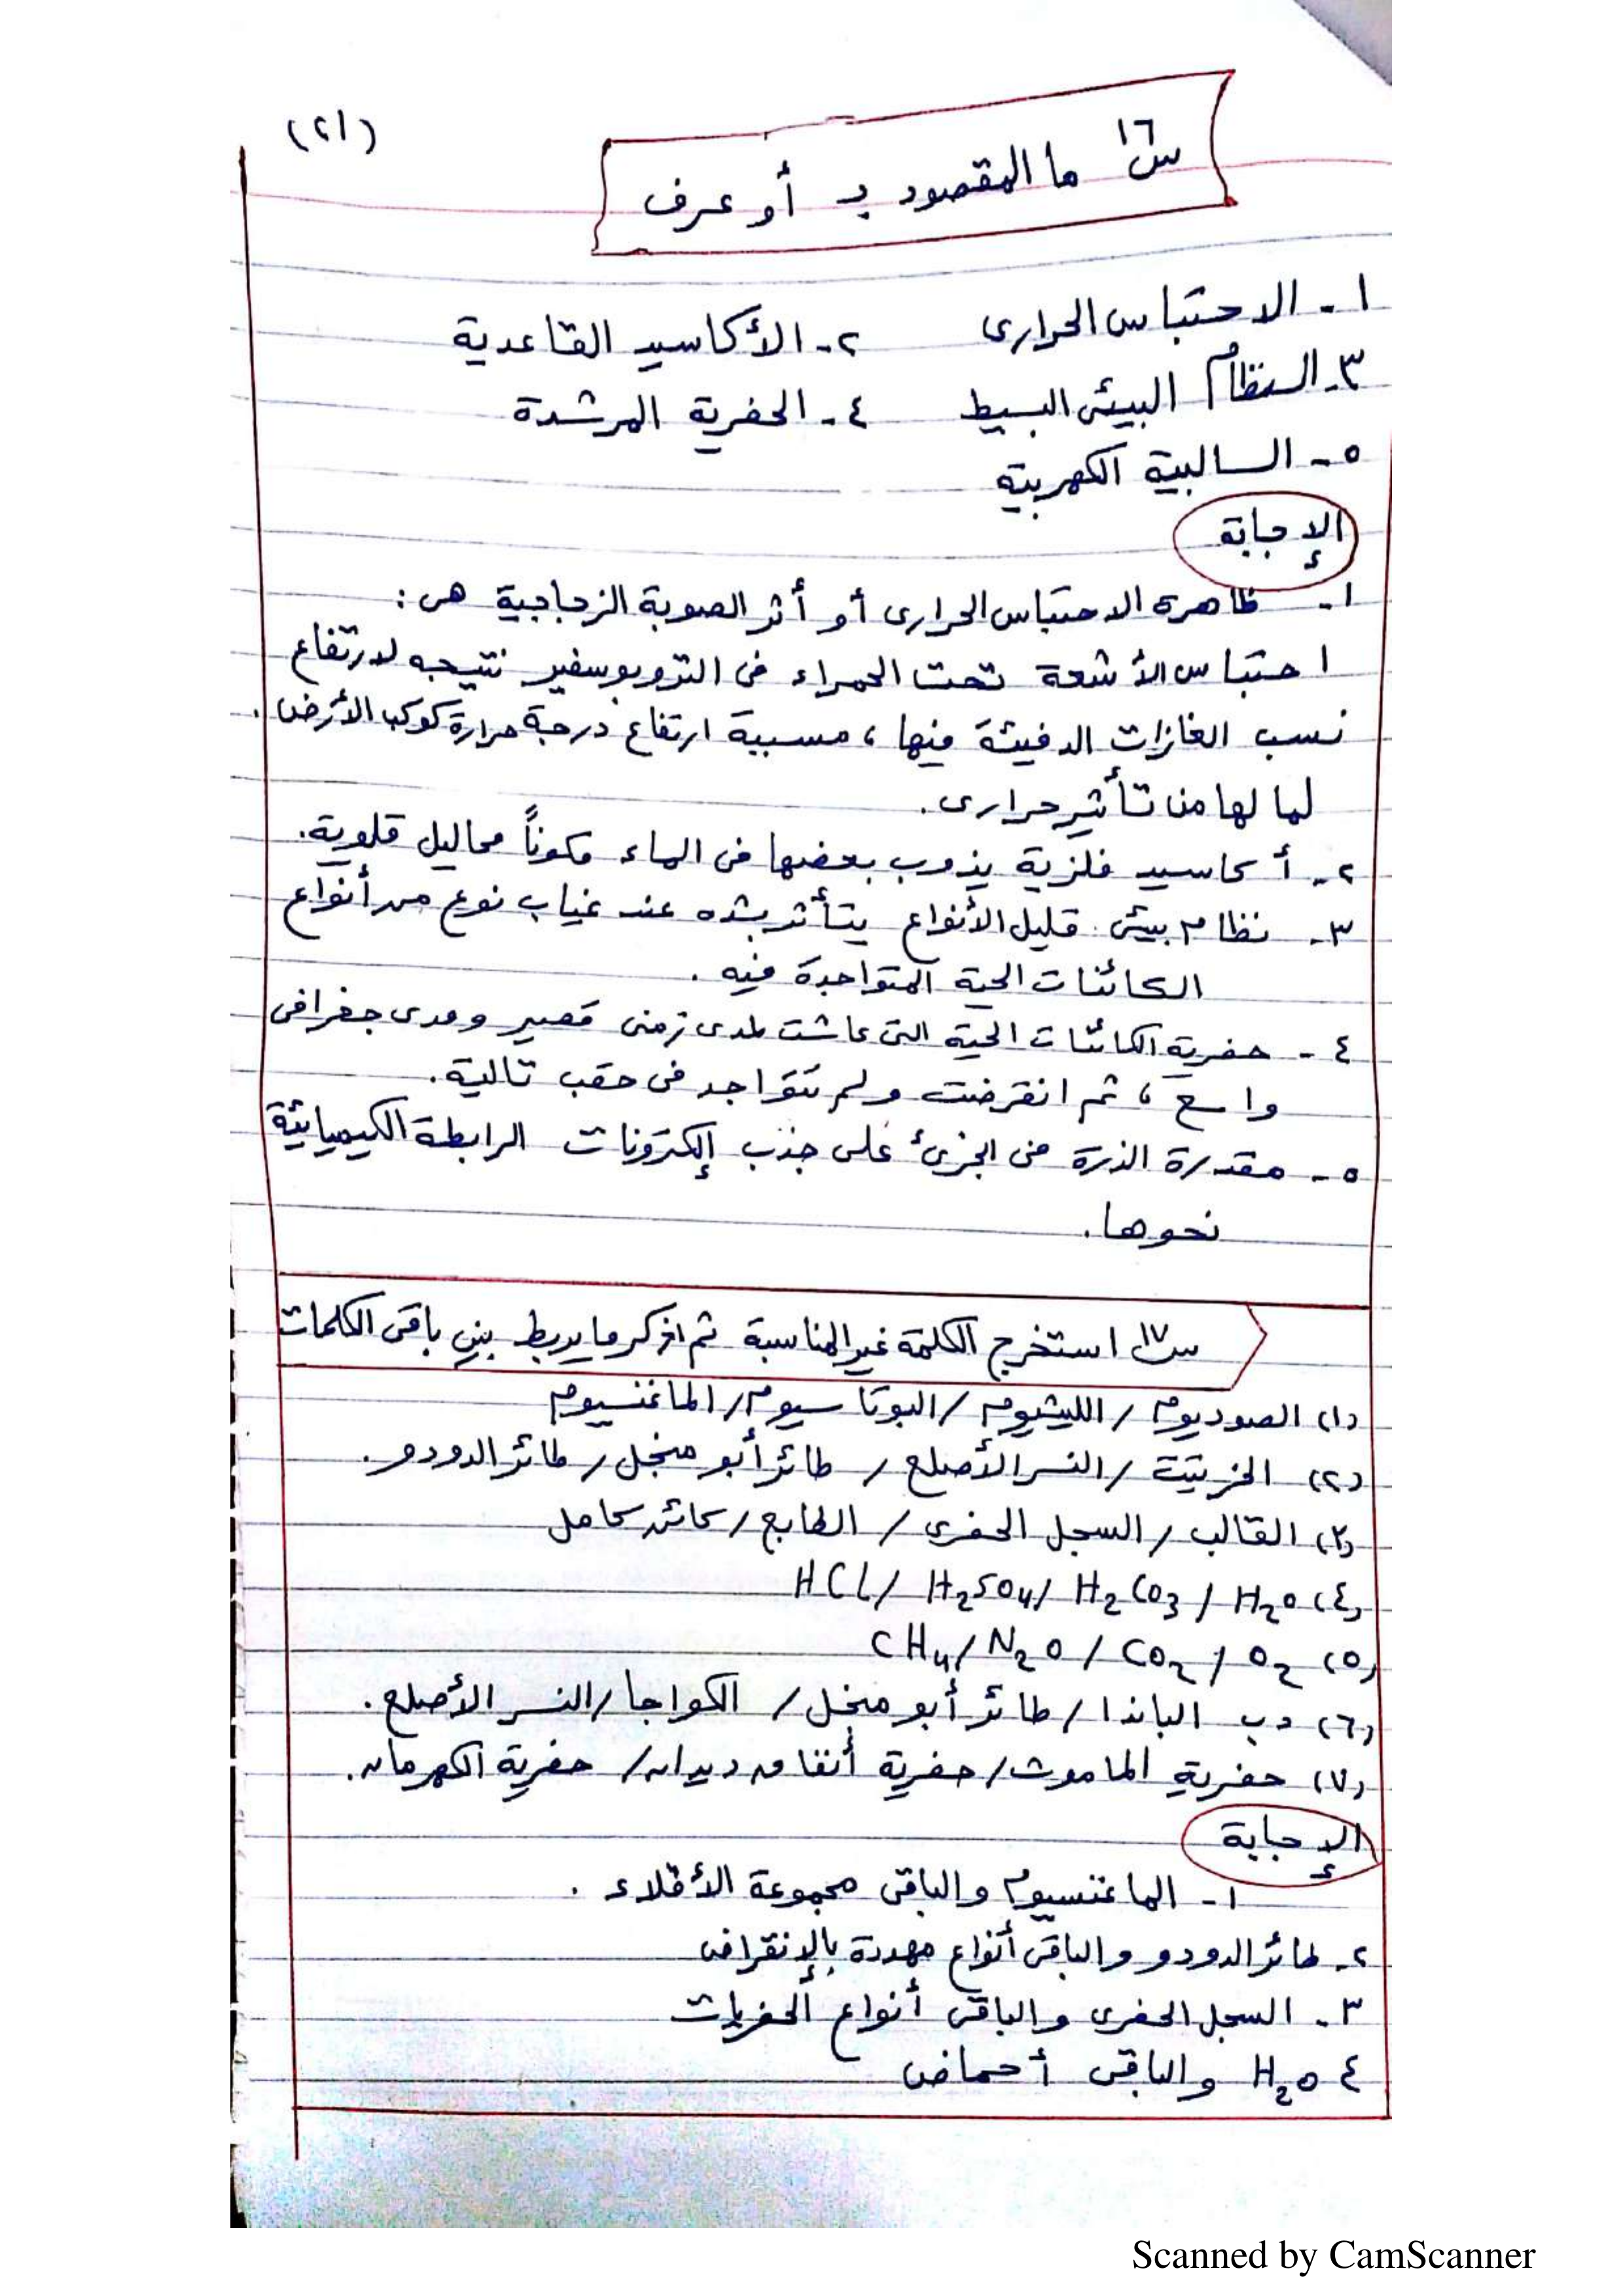 (٢١)
س١٦ ما المقصود بـ أو عرف
١- الاحتباس الحرارى ٢- الأكاسيد القاعدية
٣- النظام البيئى البسيط ٤- الحفرية المرشدة
٥- السالبية الكهربية
الإجابة
١- ظاهرة الاحتباس الحرارى أو أثر الصوبة الزجاجية هى:
احتباس الأشعة تحت الحمراء فى التروبوسفير نتيجه لارتفاع
نسب الغازات الدفيئة فيها، مسببة ارتفاع درجة حرارة كوكب الأرض.
لما لها من تأثير حرارى.
٢- أكاسيد فلزية يذوب بعضها فى الماء مكوناً محاليل قلوية.
٣- نظام بيئى قليل الأنواع يتأثر بشده عند غياب نوع من أنواع
الكائنات الحية المتواجدة فيه.
٤- حفرية الكائنات الحية التى عاشت لمدى زمنى قصير ومدى جغرافى
واسع، ثم انقرضت ولم تتواجد فى حقب تالية.
٥- مقدرة الذرة فى الجزئ على جذب إلكترونات الرابطة الكيميائية
نحوها.
س١٧ استخرج الكلمة غير المناسبة ثم اذكر ما يربط بين باقى الكلمات
(١) الصوديوم / الليثيوم / البوتاسيوم / الماغنسيوم
(٢) الخرتيت / النسر الأصلع / طائر أبو منجل / طائر الدودو.
(٣) القالب / السجل الحفرى / الطابع / كائن كامل
(٤) H₂O / H₂CO₃ / H₂SO₄ / HCl
(٥) O₂ / CO₂ / N₂O / CH₄
(٦) دب الباندا / طائر أبو منجل / الكواجا / النسر الأصلع.
(٧) حفرية الماموث / حفرية أنفاق ديدان / حفرية الكهرمان.
الإجابة
١- الماغنسيوم والباقى مجموعة الأقلاء.
٢- طائر الدودو والباقى أنواع مهددة بالإنقراض
٣- السجل الحفرى والباقى أنواع الحفريات
٤ H₂O والباقى أحماض
Scanned by CamScanner